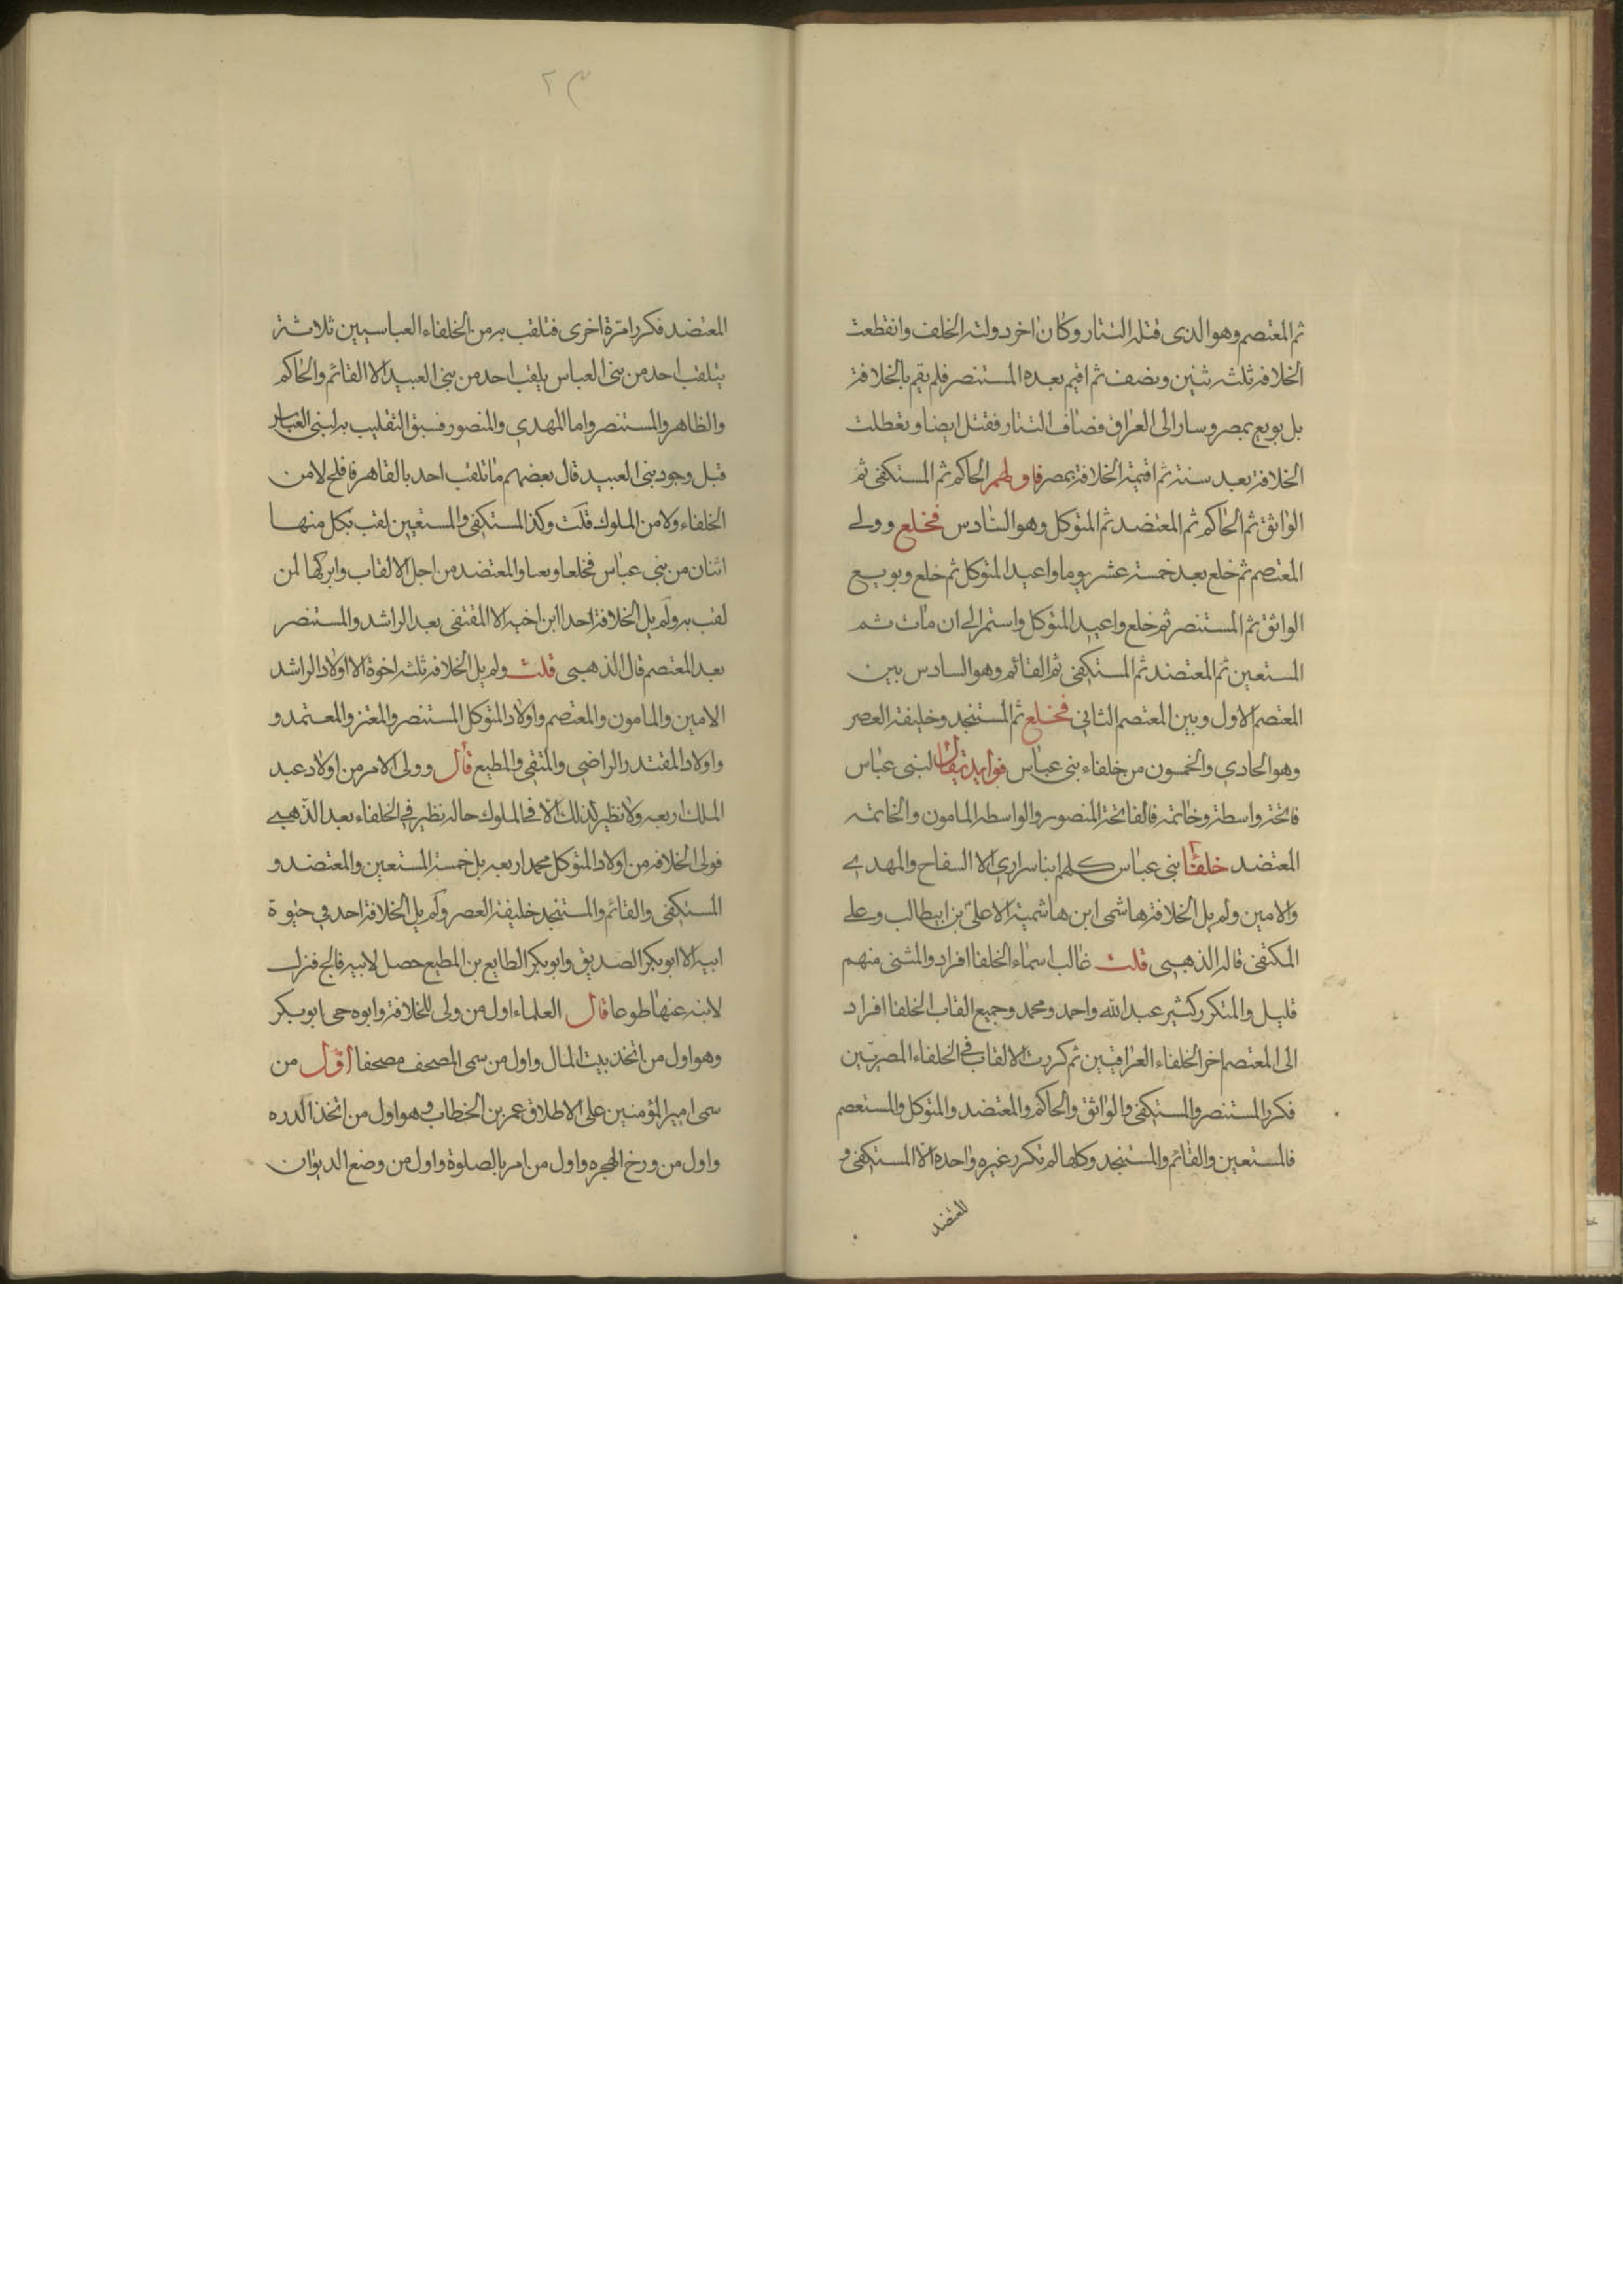 ثم المعتصم وهو الذى قتله التتار وكان اخر دولته الخلف وانقطعت
الخلافة ثلث سنين ونصف ثم اقيم بعده المستنصر فلم يقم بالخلافة
بل بويع بمصر وسار الى العراق فصاف التتار فقتل ايضا وتعطلت
الخلافة بعد سنة ثم اقيمة الخلافة بمصر فاولهم الحاكم ثم المستكفى ثم
الواثق ثم الحاكم ثم المعتضد ثم المتوكل وهو السادس فخلع وولى
المعتصم ثم خلع بعد خمسة عشر يوما واعيد المتوكل ثم خلع وبويع
الواثق ثم المستنصر ثم خلع واعيد المتوكل واستمر الى ان مات ثم
المستعين ثم المعتضد ثم المستكفى ثم القائم وهو السادس بين
المعتصم الاول وبين المعتصم الثانى فخلع ثم المستنجد وخليفة العصر
وهو الحادي والخمسون من خلفاء بنى عباس فوايد يقال لبنى عباس
فاتحة واسطة وخاتمه فالفاتحة المنصور والواسطه المامون والخاتمه
المعتضد خلفا بنى عباس كلهم ابنا سراري الا السفاح والمهدى
والامين ولم يل الخلافة هاشمى ابن هاشمية الا على بن ابيطالب وعلى
المكتفى قاله الذهبى قلت غالب اسماء الخلفا افراد والمثنى منهم
قليل والمتكرر كثير عبد الله واحمد ومحمد وجميع القاب الخلفا افراد
الى المعتصم اخر الخلفاء العراقيين ثم كررت الالقاب فى الخلفاء المصريين
فكرر المستنصر والمستكفى والواثق والحاكم والمعتضد والمتوكل والمستعصم
فالمستعين والقائم والمستنجد وكلها لم تكرر غيره واحده الا المستكفى و
المعتضد
٢٣
المعتضد فكررا مرة اخرى فتلقب به من الخلفاء العباسيين ثلاثة
يتلقب احد من بنى العباس يلقب احد من بنى العبيد الا القائم والحاكم
والظاهر والمستنصر واما المهدي والمنصور فسبق التقليب به لبنى العباس
قبل وجود بنى العبيد قال بعضهم ما تلقب احد بالقاهر فافلح لا من
الخلفاء ولا من الملوك قلت وكذا المستكفى والمستعين لقب بكل منها
اثنان من بنى عباس فخلعا ونعا والمعتضد من اجل الالقاب وابركها لمن
لقب به ولم يل الخلافة احد ابن اخيه الا المقتفى بعد الراشد والمستنصر
بعد المعتصم قال الذهبى قلت ولم يل الخلافة ثلثه اخوة الا اولاد الراشد
الامين والمامون والمعتصم واولاد المتوكل المستنصر والمعتز والمعتمد و
واولاد المقتدر الراضي والمتقى والمطيع قال وولى الامر من اولاد عبد
الملك اربعه ولا نظير لذلك الا فى الملوك حاله نظير فى الخلفاء بعد الذهبي
فولى الخلافه من اولاد المتوكل محمد اربعه بل خمسة المستعين والمعتضد و
المستكفى والقائم والمستنجد خليفة العصر ولم يل الخلافة احد فى حيوة
ابيه الا ابو بكر الصديق وابو بكر الطايع بن المطيع حصل لابيه فالج فنزل
لابنه عنها طوعا قال العلماء اول من ولى للخلافة وابوه حى ابو بكر
وهو اول من اتخذ بيت المال واول من سمى المصحف مصحفا اول من
سمى امير المؤمنين على الاطلاق عمر بن الخطاب وهو اول من اتخذ الدره
واول من ورخ الهجره واول من امر بالصلوة واول من وضع الديوان